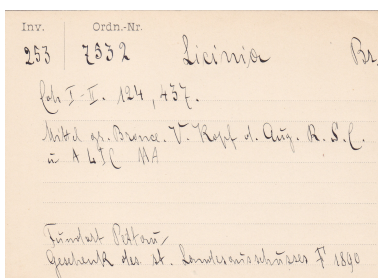 Inv. Ordn.-Nr.
253 7532 Licinia Br.
Coh I-II. 124, 437.
Mittel gr. Bronce. V. Kopf d. Aug. R. S. C.
u A LIC
Fundort Pettau
Geschenk des st. Landesausschusses F 1890